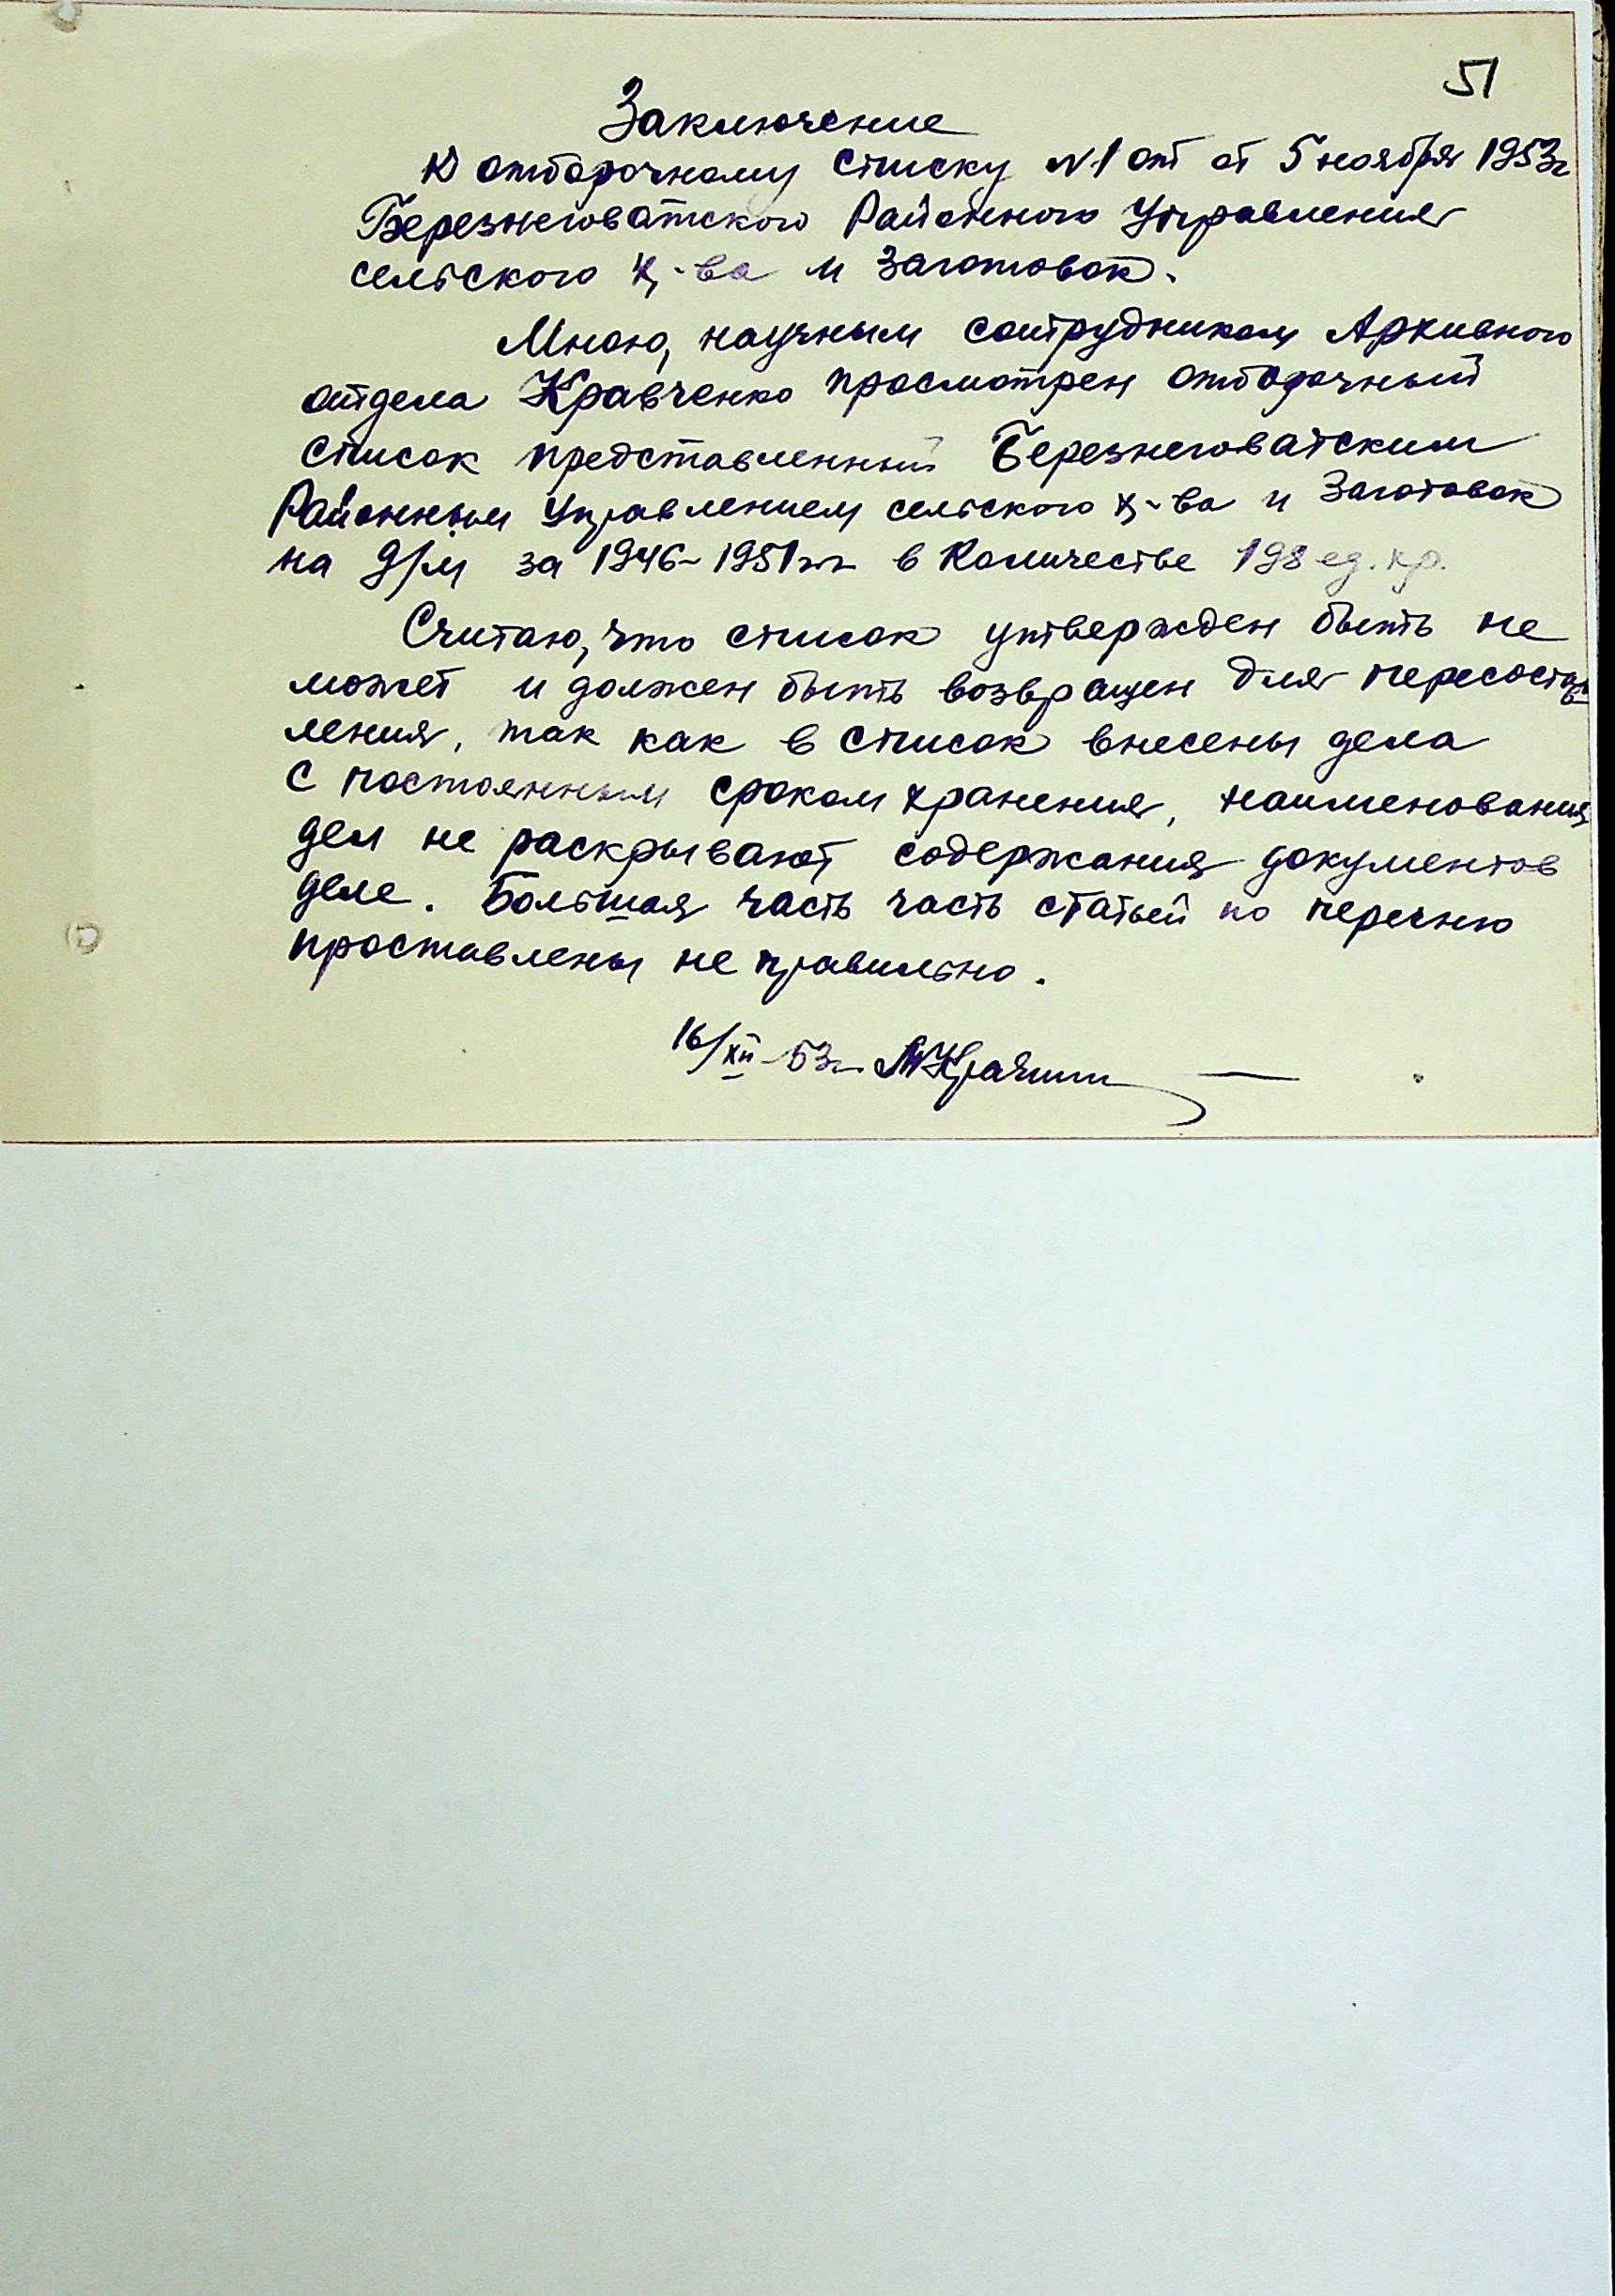 51
Заключение
к отборочному списку №1 от от 5 ноября 1953г
Березнеговатского Районного Управления
сельского х-ва и заготовок.
Мною, научным сотрудником Архивного
отдела Кравченко просмотрен отборочный
список представленный Березнеговатским
Районным Управлением сельского х-ва и Заготовок
на д/м за 1946-1951гг в количестве 198 ед. хр.
Считаю, что список утвержден быть не
может и должен быть возвращен для пересостав
ления, так как в список внесены дела
с постоянным сроком хранения, наименования
дел не раскрывают содержания документов
деле. Большая часть часть статьей по перечню
проставлены не правильно.
16/XII-53г.